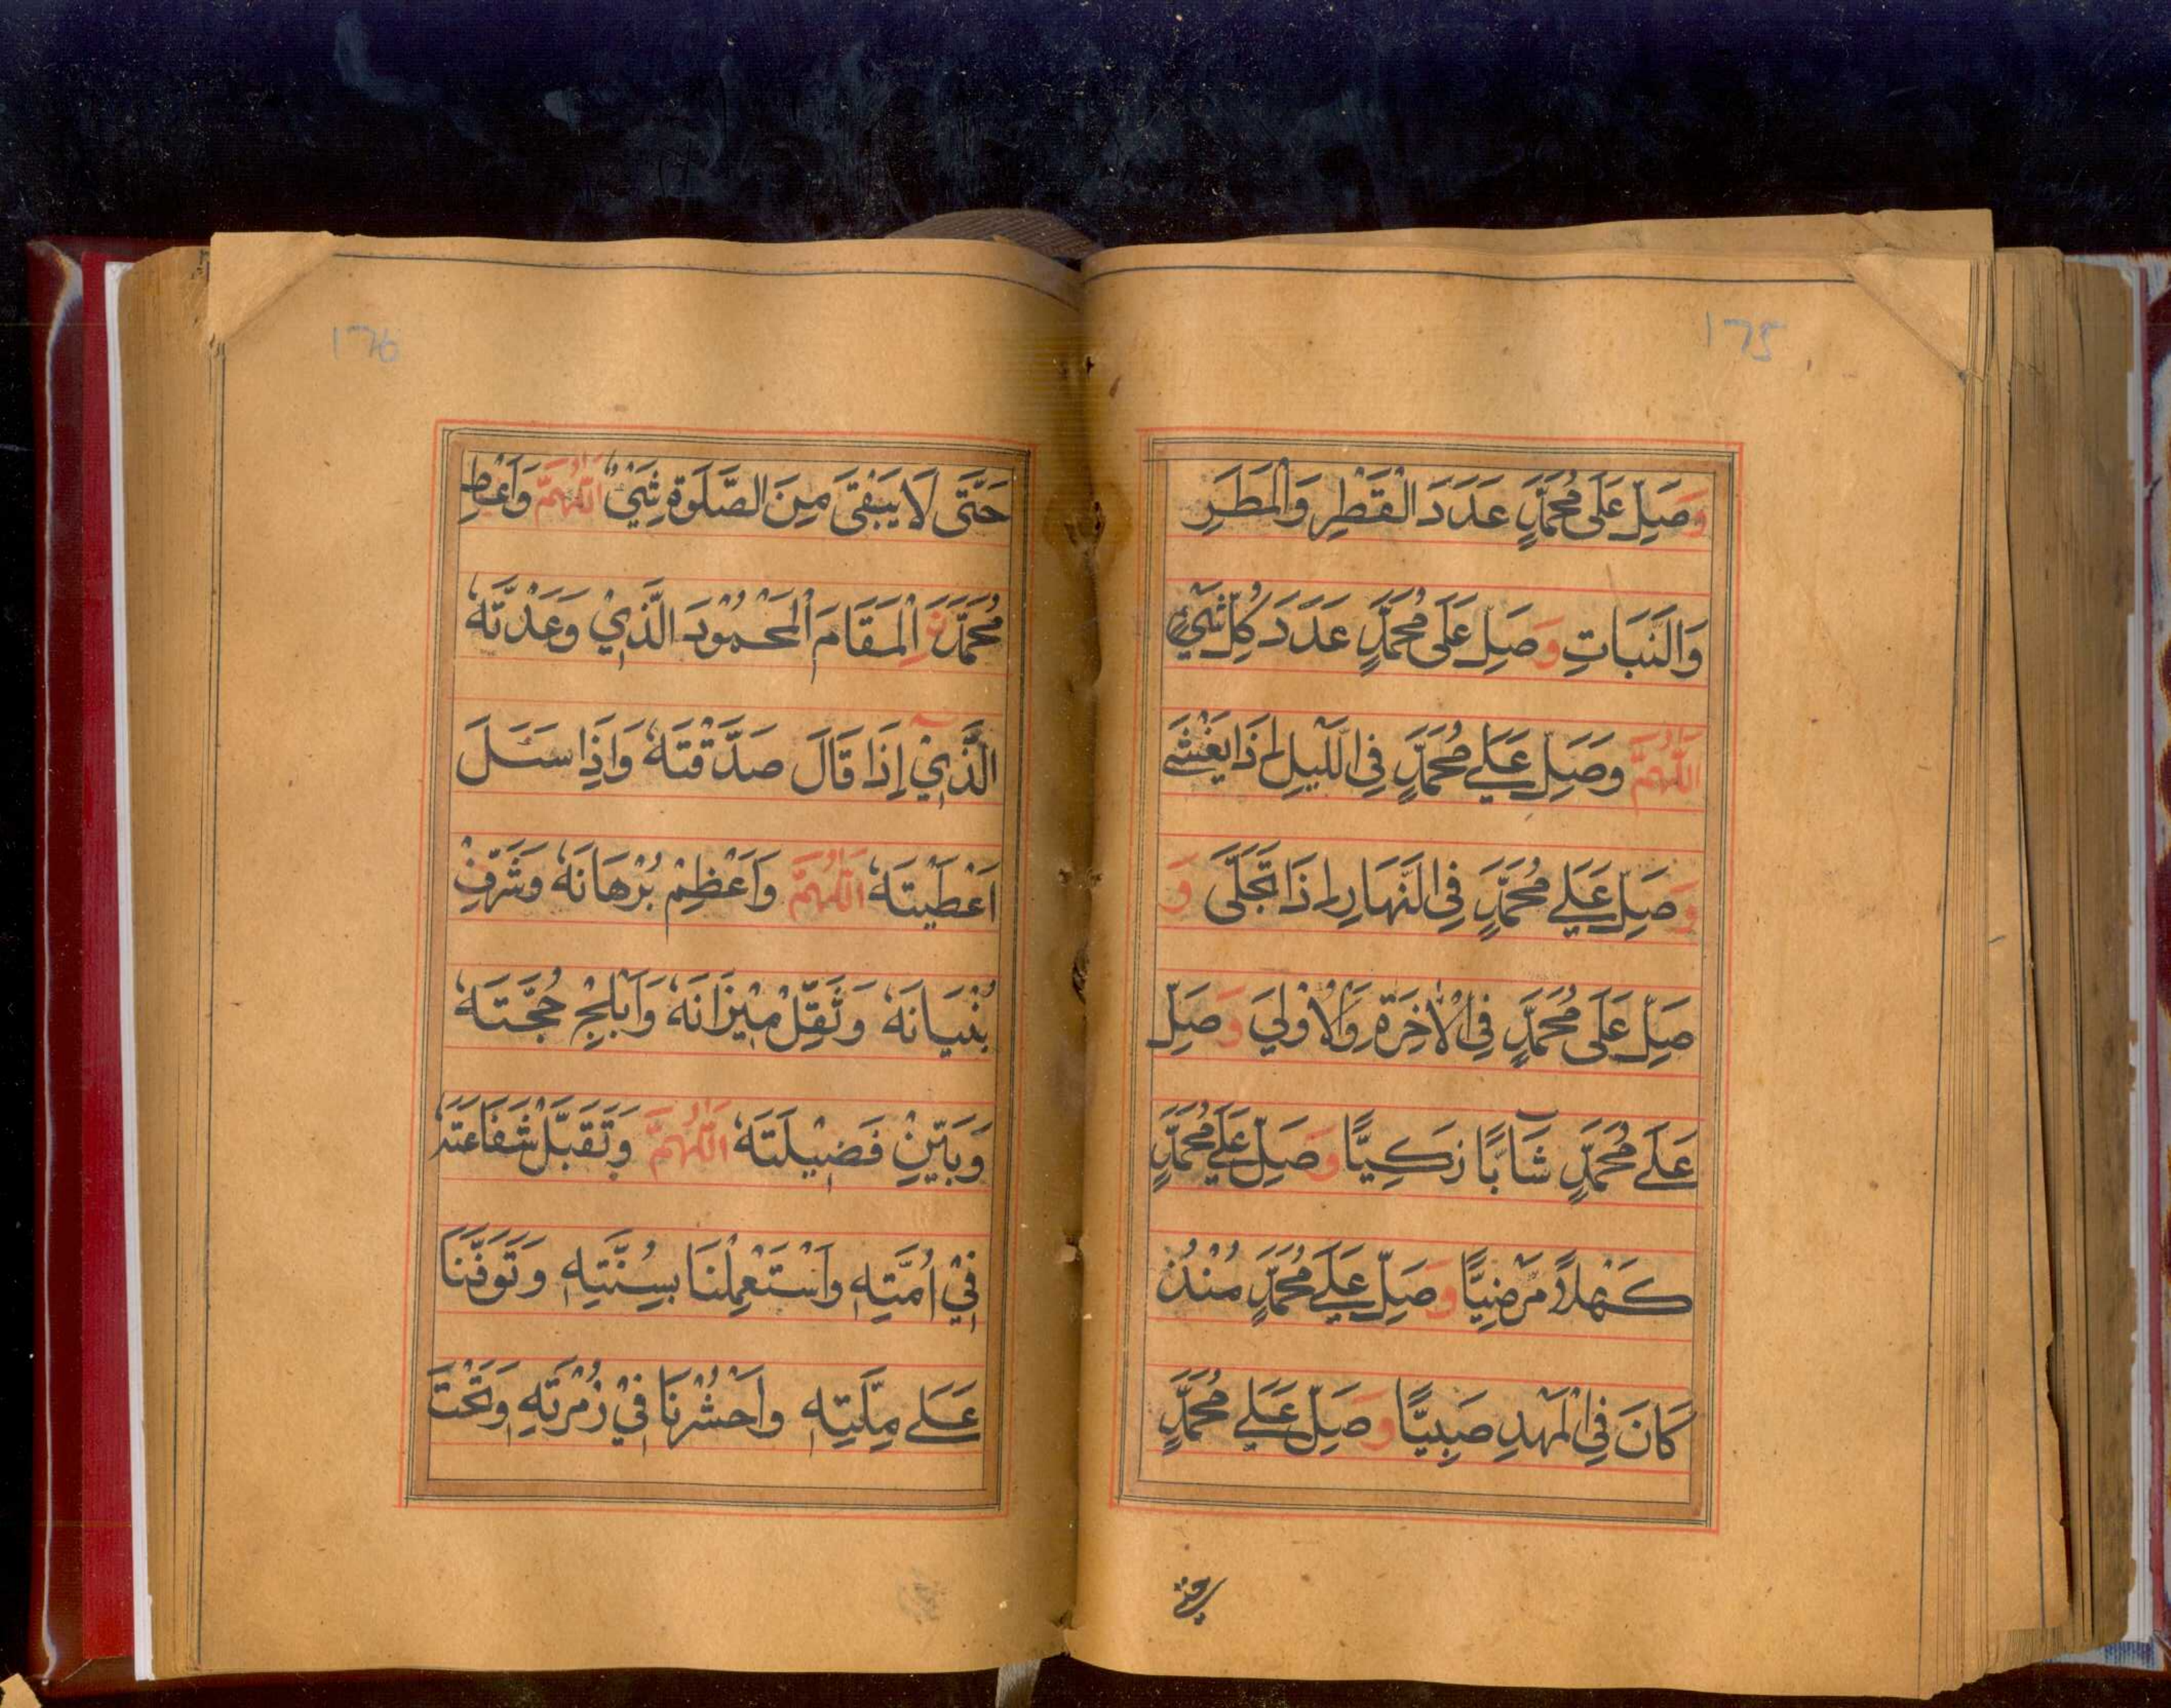 175
وَصَلِّ عَلَى مُحَمَّدٍ عَدَدَ الْقَطْرِ وَالْمَطَرِ
وَالنَّبَاتِ وَصَلِّ عَلَى مُحَمَّدٍ عَدَدَ كُلِّ شَيْءٍ
اَللّٰهُمَّ وَصَلِّ عَلٰے مُحَمَّدٍ فِي اللَّيْلِ اِذَا يَغْشٰے
وَصَلِّ عَلٰے مُحَمَّدٍ فِي النَّهَارِ اِذَا تَجَلّٰى وَ
صَلِّ عَلَى مُحَمَّدٍ فِي الْاٰخِرَةِ وَالْاُوْلٰي وَصَلِّ
عَلٰے مُحَمَّدٍ شَآبًّا زَكِيًّا وَصَلِّ عَلٰے مُحَمَّدٍ
كَهْلًا مَرْضِيًّا وَصَلِّ عَلٰے مُحَمَّدٍ مُنْذُ
كَانَ فِي الْمَهْدِ صَبِيًّا وَصَلِّ عَلٰے مُحَمَّدٍ
حتى
176
حَتَّى لَا يَبْقَى مِنَ الصَّلٰوةِ شَيْءٌ اَللّٰهُمَّ وَاَعْطِ
مُحَمَّدَنِ الْمَقَامَ الْمَحْمُوْدَ الَّذِيْ وَعَدْتَّهٗ
الَّذِيْٓ اِذَا قَالَ صَدَّقْتَهٗ وَاِذَا سَئَلَ
اَعْطَيْتَهٗ اَللّٰهُمَّ وَاَعْظِمْ بُرْهَانَهٗ وَشَرِّفْ
بُنْيَانَهٗ وَثَقِّلْ مِيْزَانَهٗ وَاَبْلِجْ حُجَّتَهٗ
وَبَيِّنْ فَضِيْلَتَهٗ اَللّٰهُمَّ وَتَقَبَّلْ شَفَاعَتَهٗ
فِيْ اُمَّتِهٖ وَاسْتَعْمِلْنَا بِسُنَّتِهٖ وَتَوَفَّنَا
عَلٰے مِلَّتِهٖ وَاحْشُرْنَا فِيْ زُمْرَتِهٖ وَتَحْتَ